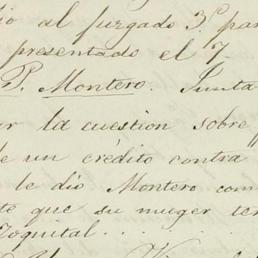 ió al juzgado 3.º par
presentado el 7.
P. Montero. Junta
ar la cuestion sobre "
de un crédito contra
le dió Montero com
te que su muger ten
Zoquital . . .